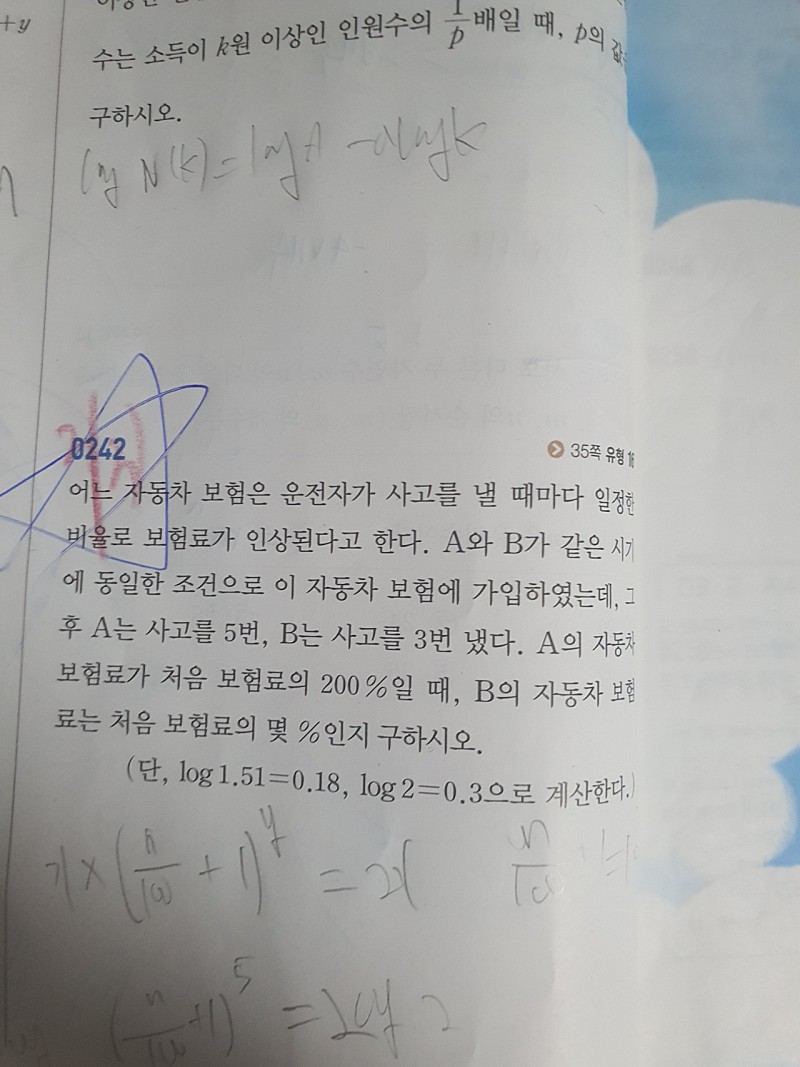 +y
수는 소득이 k원 이상인 인원수의 1/p배일 때, p의 값
구하시오.
log N(k) = log A - α log k
0242
35쪽 유형 16
어느 자동차 보험은 운전자가 사고를 낼 때마다 일정한
비율로 보험료가 인상된다고 한다. A와 B가 같은 시기
에 동일한 조건으로 이 자동차 보험에 가입하였는데, 그
후 A는 사고를 5번, B는 사고를 3번 냈다. A의 자동차
보험료가 처음 보험료의 200%일 때, B의 자동차 보험
료는 처음 보험료의 몇 %인지 구하시오.
(단, log 1.51=0.18, log 2=0.3으로 계산한다.)
x × (n/100 + 1)^y = 2x
n/100
(n/100 + 1)^5 = log 2